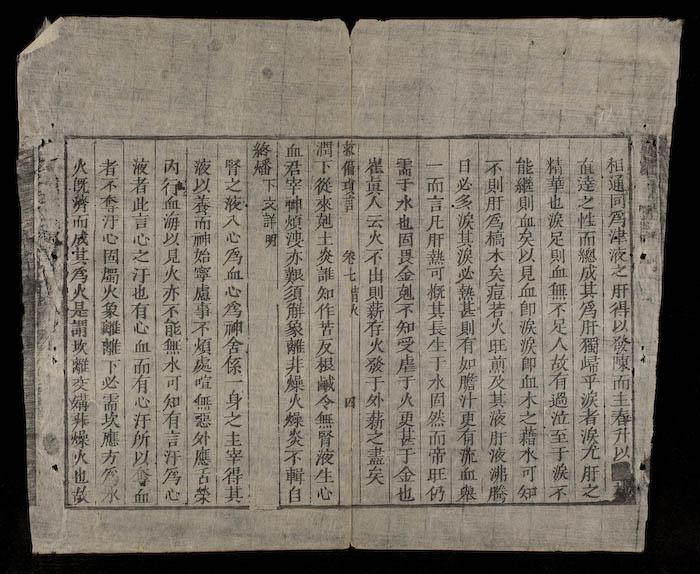 相通同為津液之肝得以發陳而主春升以
直達之性而總成其為肝獨歸乎淚者淚尤肝之
精華也淚足則血無不足人故有過泣至于淚不
能繼則血矣以見血卽淚淚卽血木之藉水可知
不則肝為槁木矣痘若火旺煎及其液肝液沸騰
日必多淚其淚必熱甚則有如膽汁更有流血與
一而言凡肝熱可概其長生于水固然而帝旺仍
需于水也固畏金剋不知受虐于火更甚于金也
崔眞人云火不出則薪存火發于外薪之盡矣
救偏瑣言 卷七 四
潤下從來剋土炎誰知作苦反根鹹令無腎液生心
血君宰神煩溲亦艱須解象離非燥火燥炎不輯自
終燔 下文詳明
腎之液入心為血心為神舍係一身之主宰得其
液以養而神始寧慮事不煩處喧無惡外應舌榮
內行血海以見火亦不能無水可知有言汗為心
液者此言心之汗也有心血而有心汗所以奪血
者不奪汗心固屬火象離離下必需坎應方為水
火旣濟而成其為火是謂坎離交媾非燥火也故